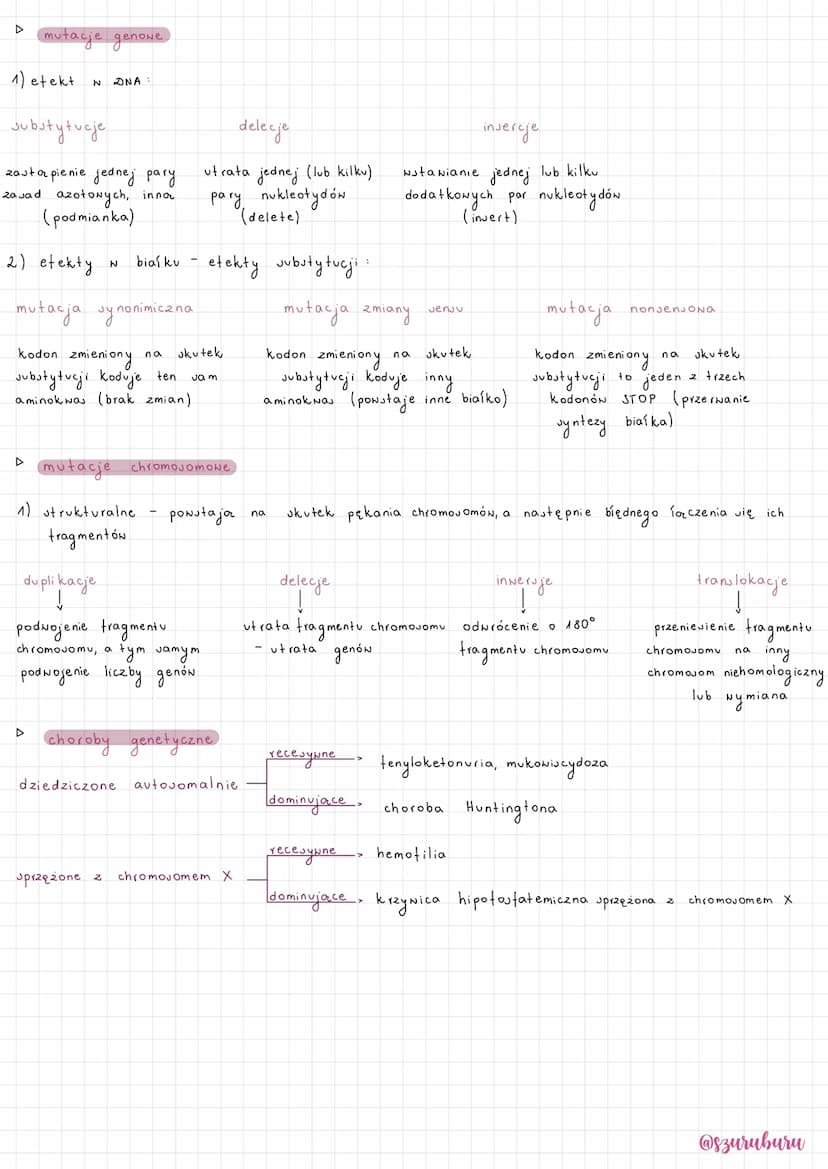 mutacje genowe
1) efekt w DNA:
substytucje
delecje
insercje
zastąpienie jednej pary
zasad azotowych, inną
(podmianka)
utrata jednej (lub kilku)
pary nukleotydów
(delete)
wstawianie jednej lub kilku
dodatkowych par nukleotydów
(insert)
2) efekty w białku - efekty substytucji:
mutacja synonimiczna
mutacja zmiany sensu
mutacja nonsensowa
kodon zmieniony na skutek
substytucji koduje ten sam
aminokwas (brak zmian)
kodon zmieniony na skutek
substytucji koduje inny
aminokwas (powstaje inne białko)
kodon zmieniony na skutek
substytucji to jeden z trzech
kodonów STOP (przerwanie
syntezy białka)
mutacje chromosomowe
1) strukturalne - powstają na skutek pękania chromosomów, a następnie błędnego łączenia się ich
fragmentów
duplikacje
delecje
inwersje
translokacje
podwojenie fragmentu
chromosomu, a tym samym
podwojenie liczby genów
utrata fragmentu chromosomu
- utrata genów
odwrócenie o 180°
fragmentu chromosomu
przeniesienie fragmentu
chromosomu na inny
chromosom niehomologiczny
lub wymiana
choroby genetyczne
dziedziczone autosomalnie
recesywne > fenyloketonuria, mukowiscydoza
dominujące > choroba Huntingtona
sprzężone z chromosomem X
recesywne > hemofilia
dominujące > krzywica hipofosfatemiczna sprzężona z chromosomem X
@szuruburu